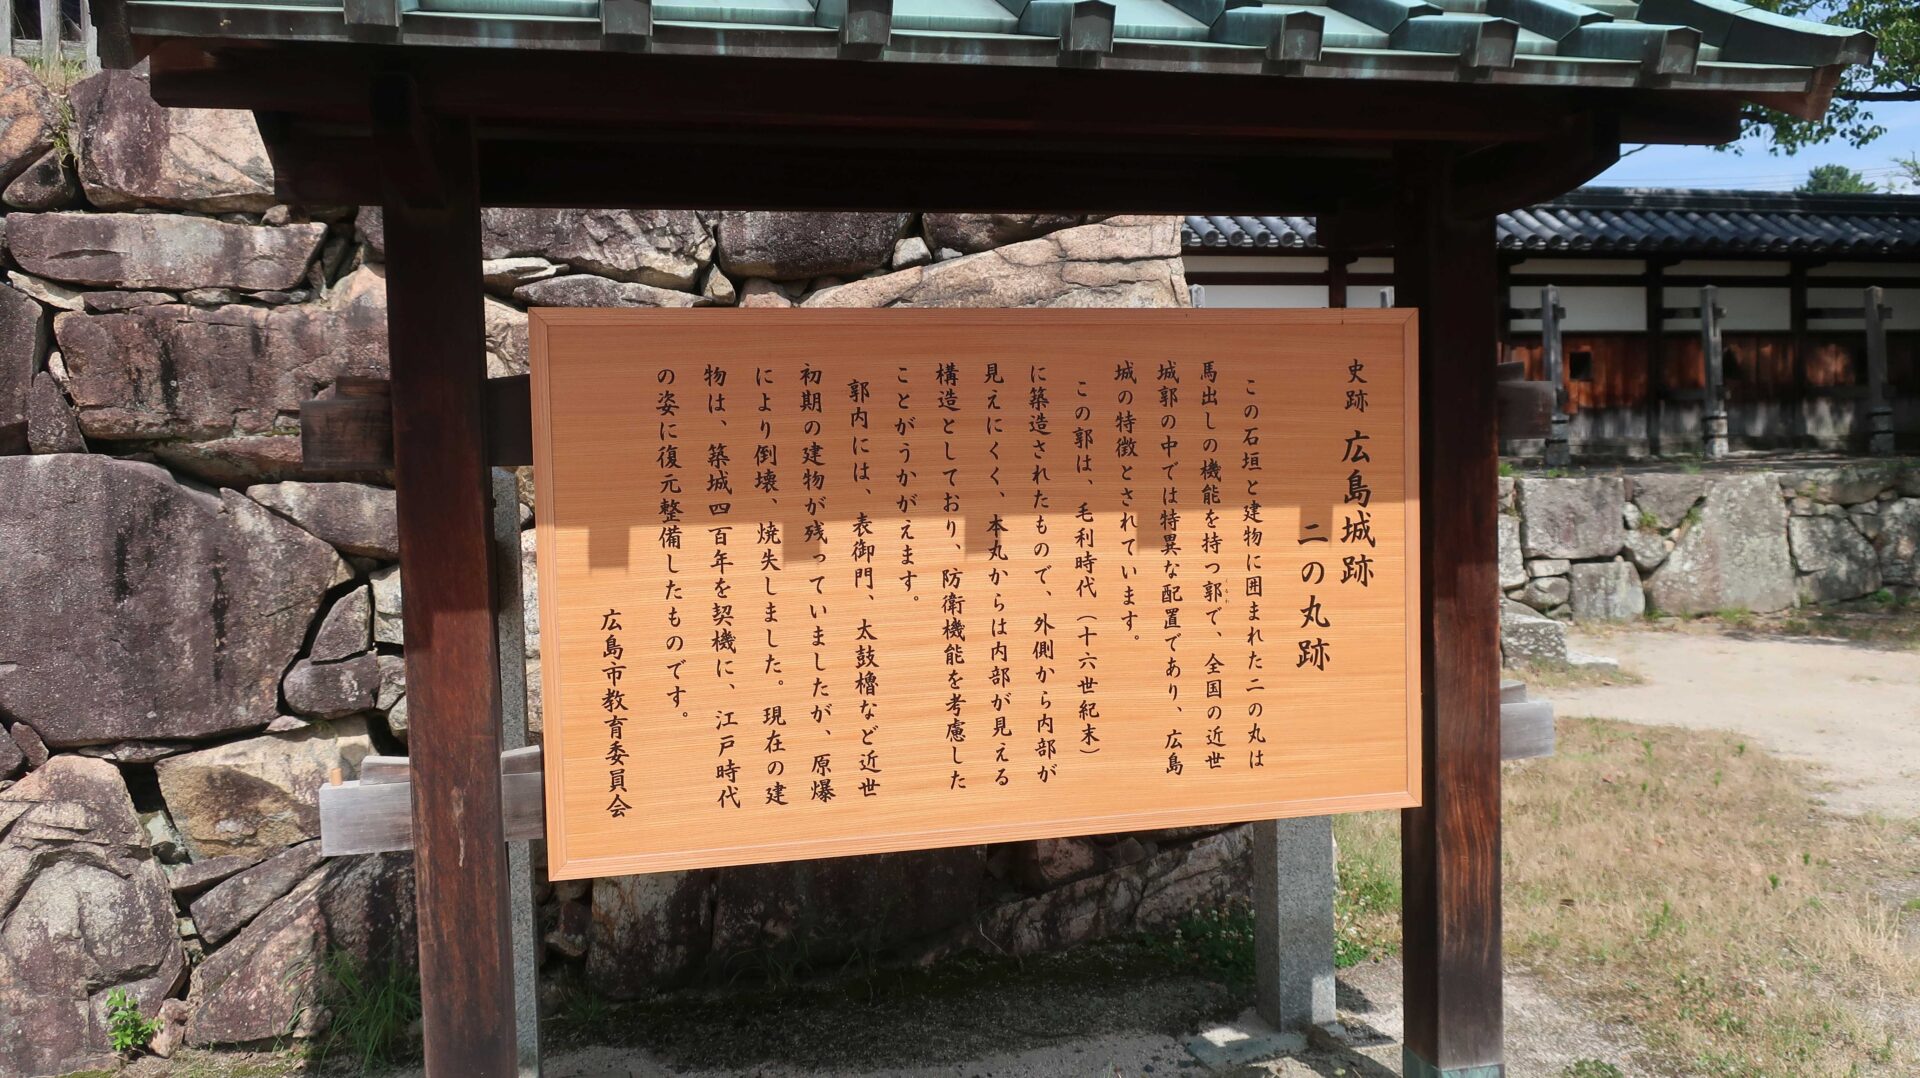 史跡 広島城跡
二の丸跡
この石垣と建物に囲まれた二の丸は
馬出しの機能を持つ郭で、全国の近世
くるわ
城郭の中では特異な配置であり、広島
城の特徴とされています。
この郭は、毛利時代（十六世紀末）
に築造されたもので、外側から内部が
見えにくく、本丸からは内部が見える
構造としており、防衛機能を考慮した
ことがうかがえます。
郭内には、表御門、太鼓櫓など近世
初期の建物が残っていましたが、原爆
により倒壊、焼失しました。現在の建
物は、築城四百年を契機に、江戸時代
の姿に復元整備したものです。
広島市教育委員会